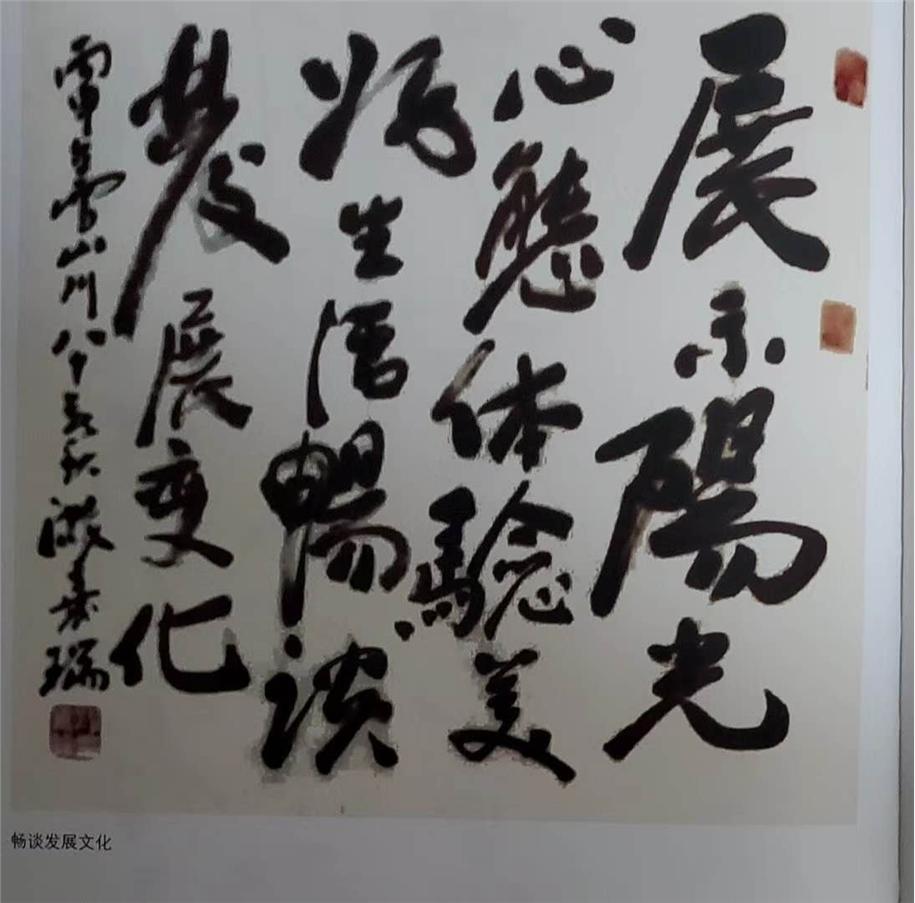 展示陽光
心態体驗美
好生活暢談
發展变化
雷山川八十
瑞
畅谈发展文化